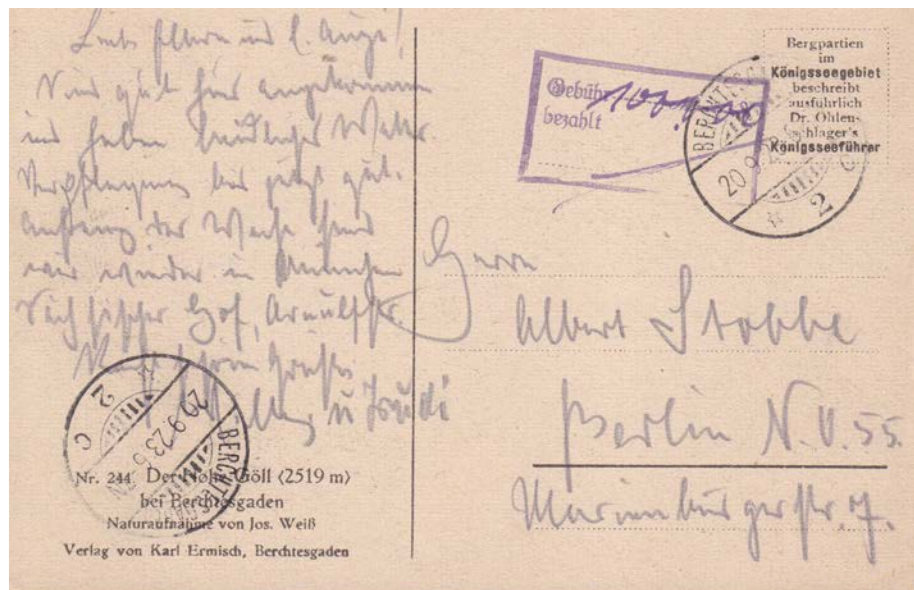 Liebe Eltern und l. Anni!
Sind gut hier angekommen
und haben herrliches Wetter
Verpflegung bis jetzt gut.
Anfang der Woche sind
wir wieder in München
Sächsischer Hof, Arnulfstr.
Viele schöne Grüße
u Trudi
Nr. 244 Der Hohe Göll (2519 m)
bei Berchtesgaden
Naturaufnahme von Jos. Weiß
Verlag von Karl Ermisch, Berchtesgaden
BERCHTESGADEN
20.9.23
2 c
Gebühr
bezahlt
BERCHTESGADEN
20.9.23
2 c
Bergpartien
im
Königsseegebiet
beschreibt
ausführlich
Dr. Ohlen-
schlager's
Königsseeführer
Herrn
Albert Stobbe
Berlin N.O. 55.
Marienburgerstr. 7.